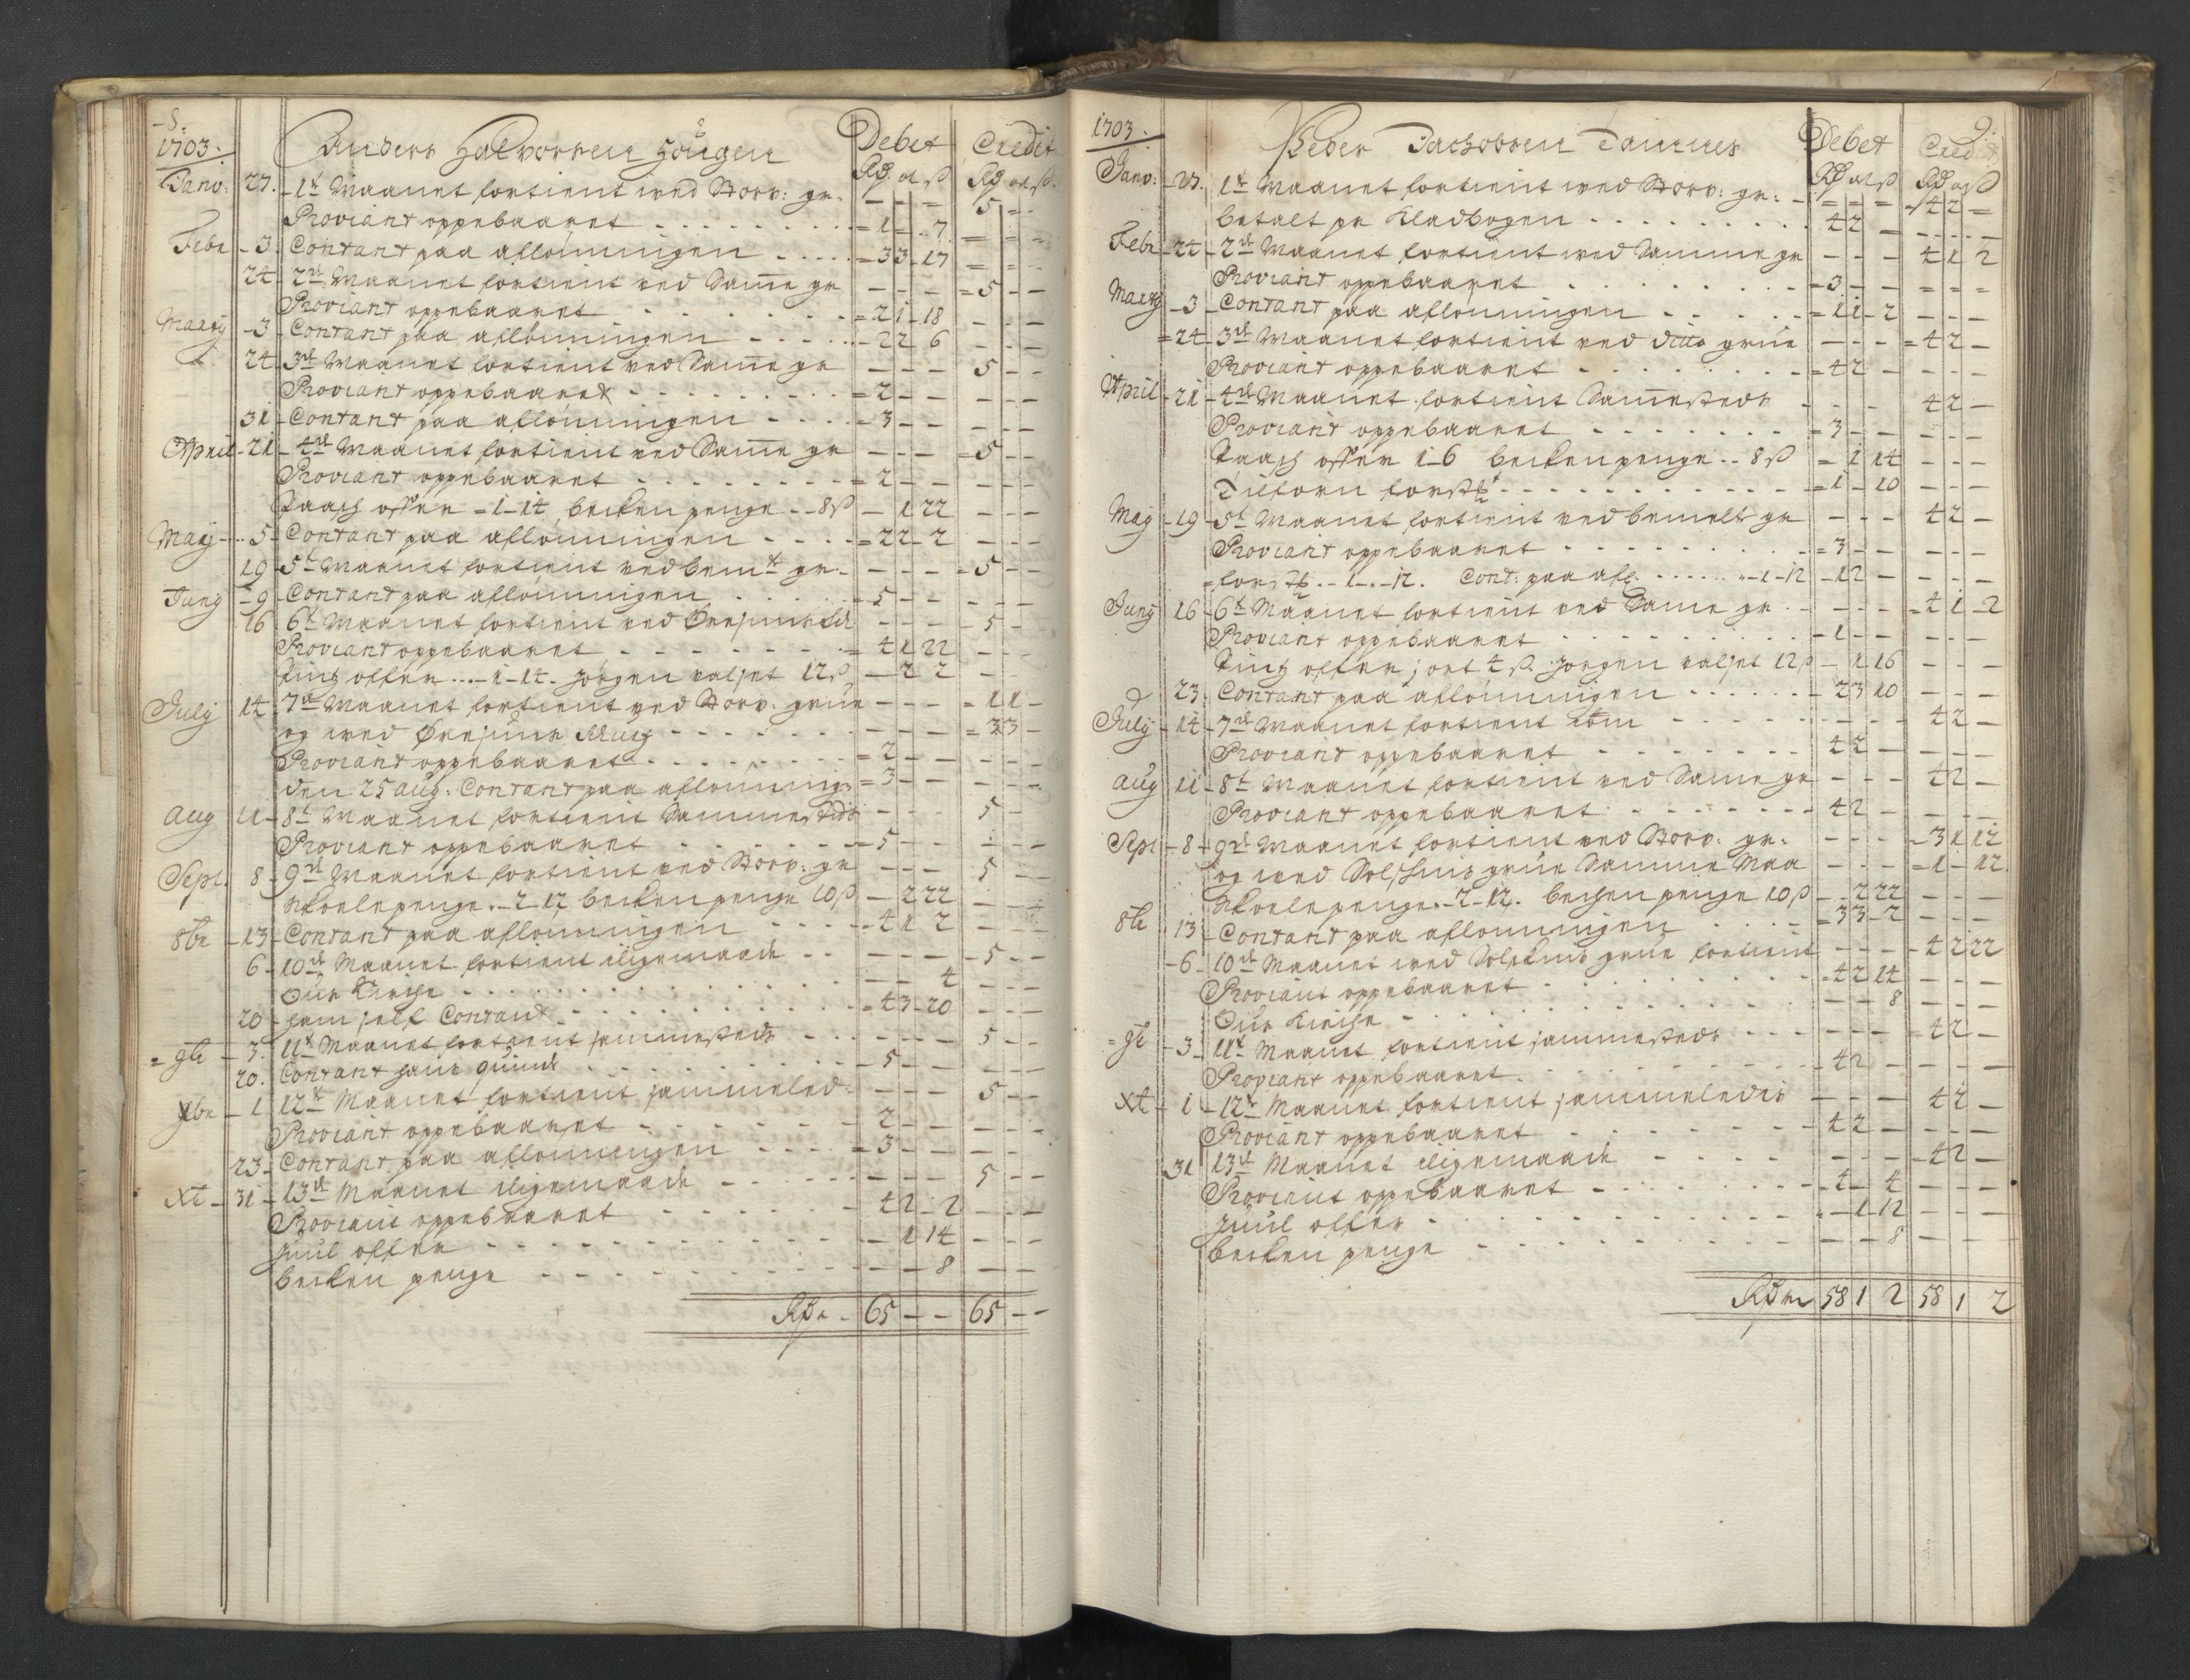 8.
1703. Anders Halvorsen Hougen Debet Credit
Rdr ort ß Rdr ort ß
Janv: 27. 1t Maanet fortient wed Storv: gr. - - - 5 - -
Proviant oppebaaret 1 - 7 - - -
Febr 3. Contant paa aflönningen 3 3 17 - - -
24 2de Maanet fortient ved Same gr - - - 5 - -
Proviant oppebaaret 2 1 18 - - -
Marty 3 Contant paa aflönningen 2 2 6 - - -
24 3de Maanet fortient ved Same gr - - - 5 - -
Proviant oppebaaret 2 - - - - -
31 Contant paa aflönningen 3 - - - - -
April 21 4de Maanet fortient ved Same gr - - - 5 - -
Proviant oppebaaret 2 - - - - -
Paasch offer 1-14, becken penge 8 ß - 1 22 - - -
May 5 Contant paa aflönningen 2 2 2 - - -
19 5t Maanet fortient ved bemt gr - - - 5 - -
Juny 9 Contant paa aflönningen 5 - - - - -
16 6t Maanet fortient ved - - - 5 -
Proviant oppebaaret 4 1 22 - - -
Pintz offer 1-14. Jörgen 12 ß - 2 2 -
July 14 7de Maanet fortient ved Storv: grue - - - 1 1 -
og wed - - - 3 3 -
Proviant oppebaaret 2 - - - - -
den 25 aug: Contant paa aflönning: 3 - - - - -
Aug 11 8t Maanet fortient Sammestedt - - - 5 -
Proviant oppebaaret 5 - - - - -
Sept. 8 9de Maanet fortient ved Storv: gr - - - 5 - -
Skolepenge 2-12 becken penge 10 ß - 2 22 - - -
8br 13 Contant paa aflönningen 4 1 2 - - -
6 10de Maanet fortient ligemaade - - - 5 - -
Kirche - - 4 - - -
20 ham self Contant 4 3 20 - - -
9br 3. 11t Maanet fortient sammestedt - - - 5 - -
20. Contant hans quinde 5 - - - - -
Xbr 1 12t Maanet fortient sammeledes - - - 5 - -
Proviant oppebaaret 2 - - - - -
23 Contant paa aflönningen 3 - - - - -
Xt 31 13de Maanet ligemaade - - - 5 - -
Proviant oppebaaret 4 2 2 - - -
Juul offer - 1 14 - - -
becken penge - - 8 - -
Rdr 65 - - 65 - -
9.
1703. Peder Jachobsen Debet Credit
Rdr ort ß Rdr ort ß
Janv: 27. 1t Maanet fortient wed Storv: gr: - - - 4 2 -
betalt pr Kladbogen 4 2 - - - -
Febr 24 2de Maanet fortient wed Samme gr - - - 4 1 2
Proviant oppebaaret 3 - - - - -
Marty 3 Contant paa aflönningen 1 1 2 - - -
24 3de Maanet fortient ved ditto grue - - - 4 2 -
Proviant oppebaaret 4 2 - - - -
April 21 4de Maanet fortient Samestedt - - - 4 2 -
Proviant oppebaaret 3 - - - - -
Paasch offer 1-6 becken penge 8 ß - 1 14 - - -
Tilforn 1 - 10 - - -
May 19 5t Maanet fortient ved bemelt gr - - - 4 2 -
Proviant oppebaaret 3 - - - - -
1-12. Cont: paa afl: 1-12 1 2 - - - -
Juny 16 6t Maanet fortient ved Same gr - - - 4 1 2
Proviant oppebaaret 1 - - - - -
Pintz offer 4 ß Jörgen 12 ß - 1 16 - - -
23. Contant paa aflönningen 2 3 10 - - -
July 14 7de Maanet fortient - - - 4 2 -
Proviant oppebaaret 4 2 - - - -
Aug 11 8t Maanet fortient ved Same gr - - - 4 2 -
Proviant oppebaaret 4 2 - - - -
Sept 8 9de Maanet fortient ved Storv: gr: - - - 3 1 12
og wed grue Samme Maa - - - 1 - 12.
Skolepenge 2-12. bechen penge 10 ß - 2 22 - - -
8br 13 Contant paa aflönningen 3 3 2 - - -
6 10de Maanet wed grue fortient - - - 4 2 22
Proviant oppebaaret 4 2 14 - - -
Kirche - - 8 - - -
9br 3 11t Maanet fortient sammestedt - - - 4 2 -
Proviant oppebaaret 4 2 - - - -
Xt 1 12t Maanet fortient sammeledis - - - 4 2 -
Proviant oppebaaret 4 2 - - - -
31 13de Maanet ligemaade - - - 4 2 -
Proviant oppebaaret 4 - 4 - - -
Juul offer - 1 12 - - -
becken penge - - 8 - - -
Rdr 58 1 2 58 1 2